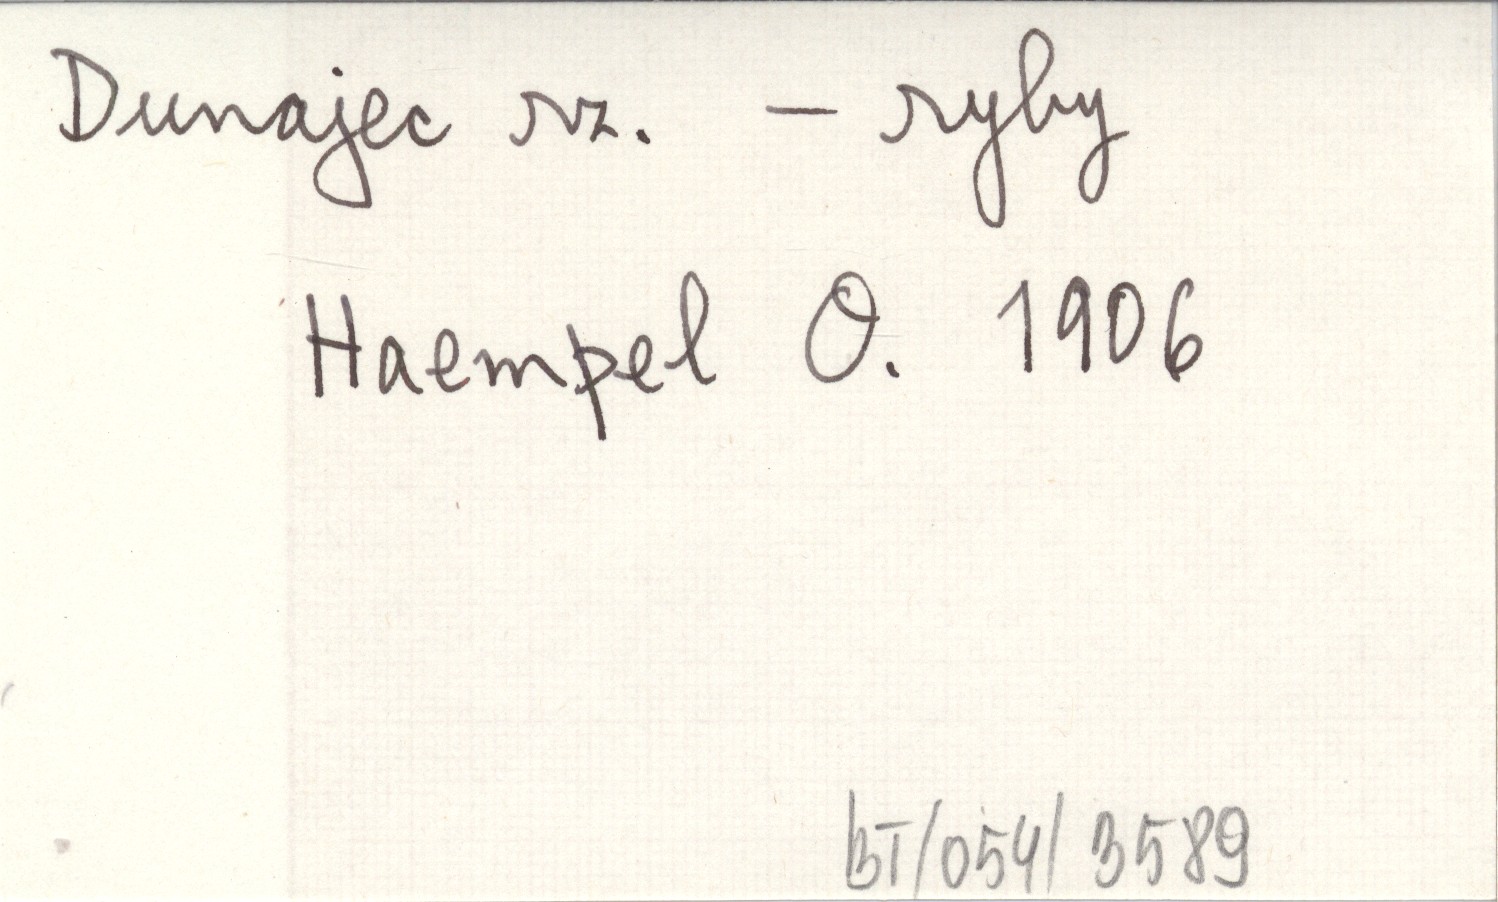 Dunajec rz. – ryby
Haempel O. 1906
BT/054/3589